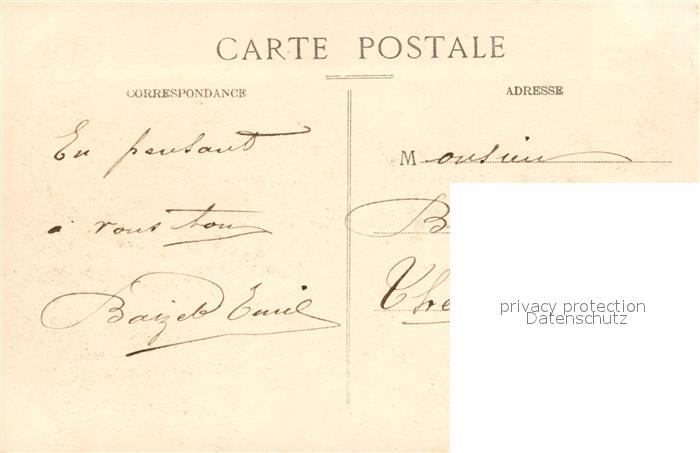 CARTE POSTALE
CORRESPONDANCE
En pensant
à vous tou
Emil
ADRESSE
Monsieur
B
Thé
privacy protection
Datenschutz